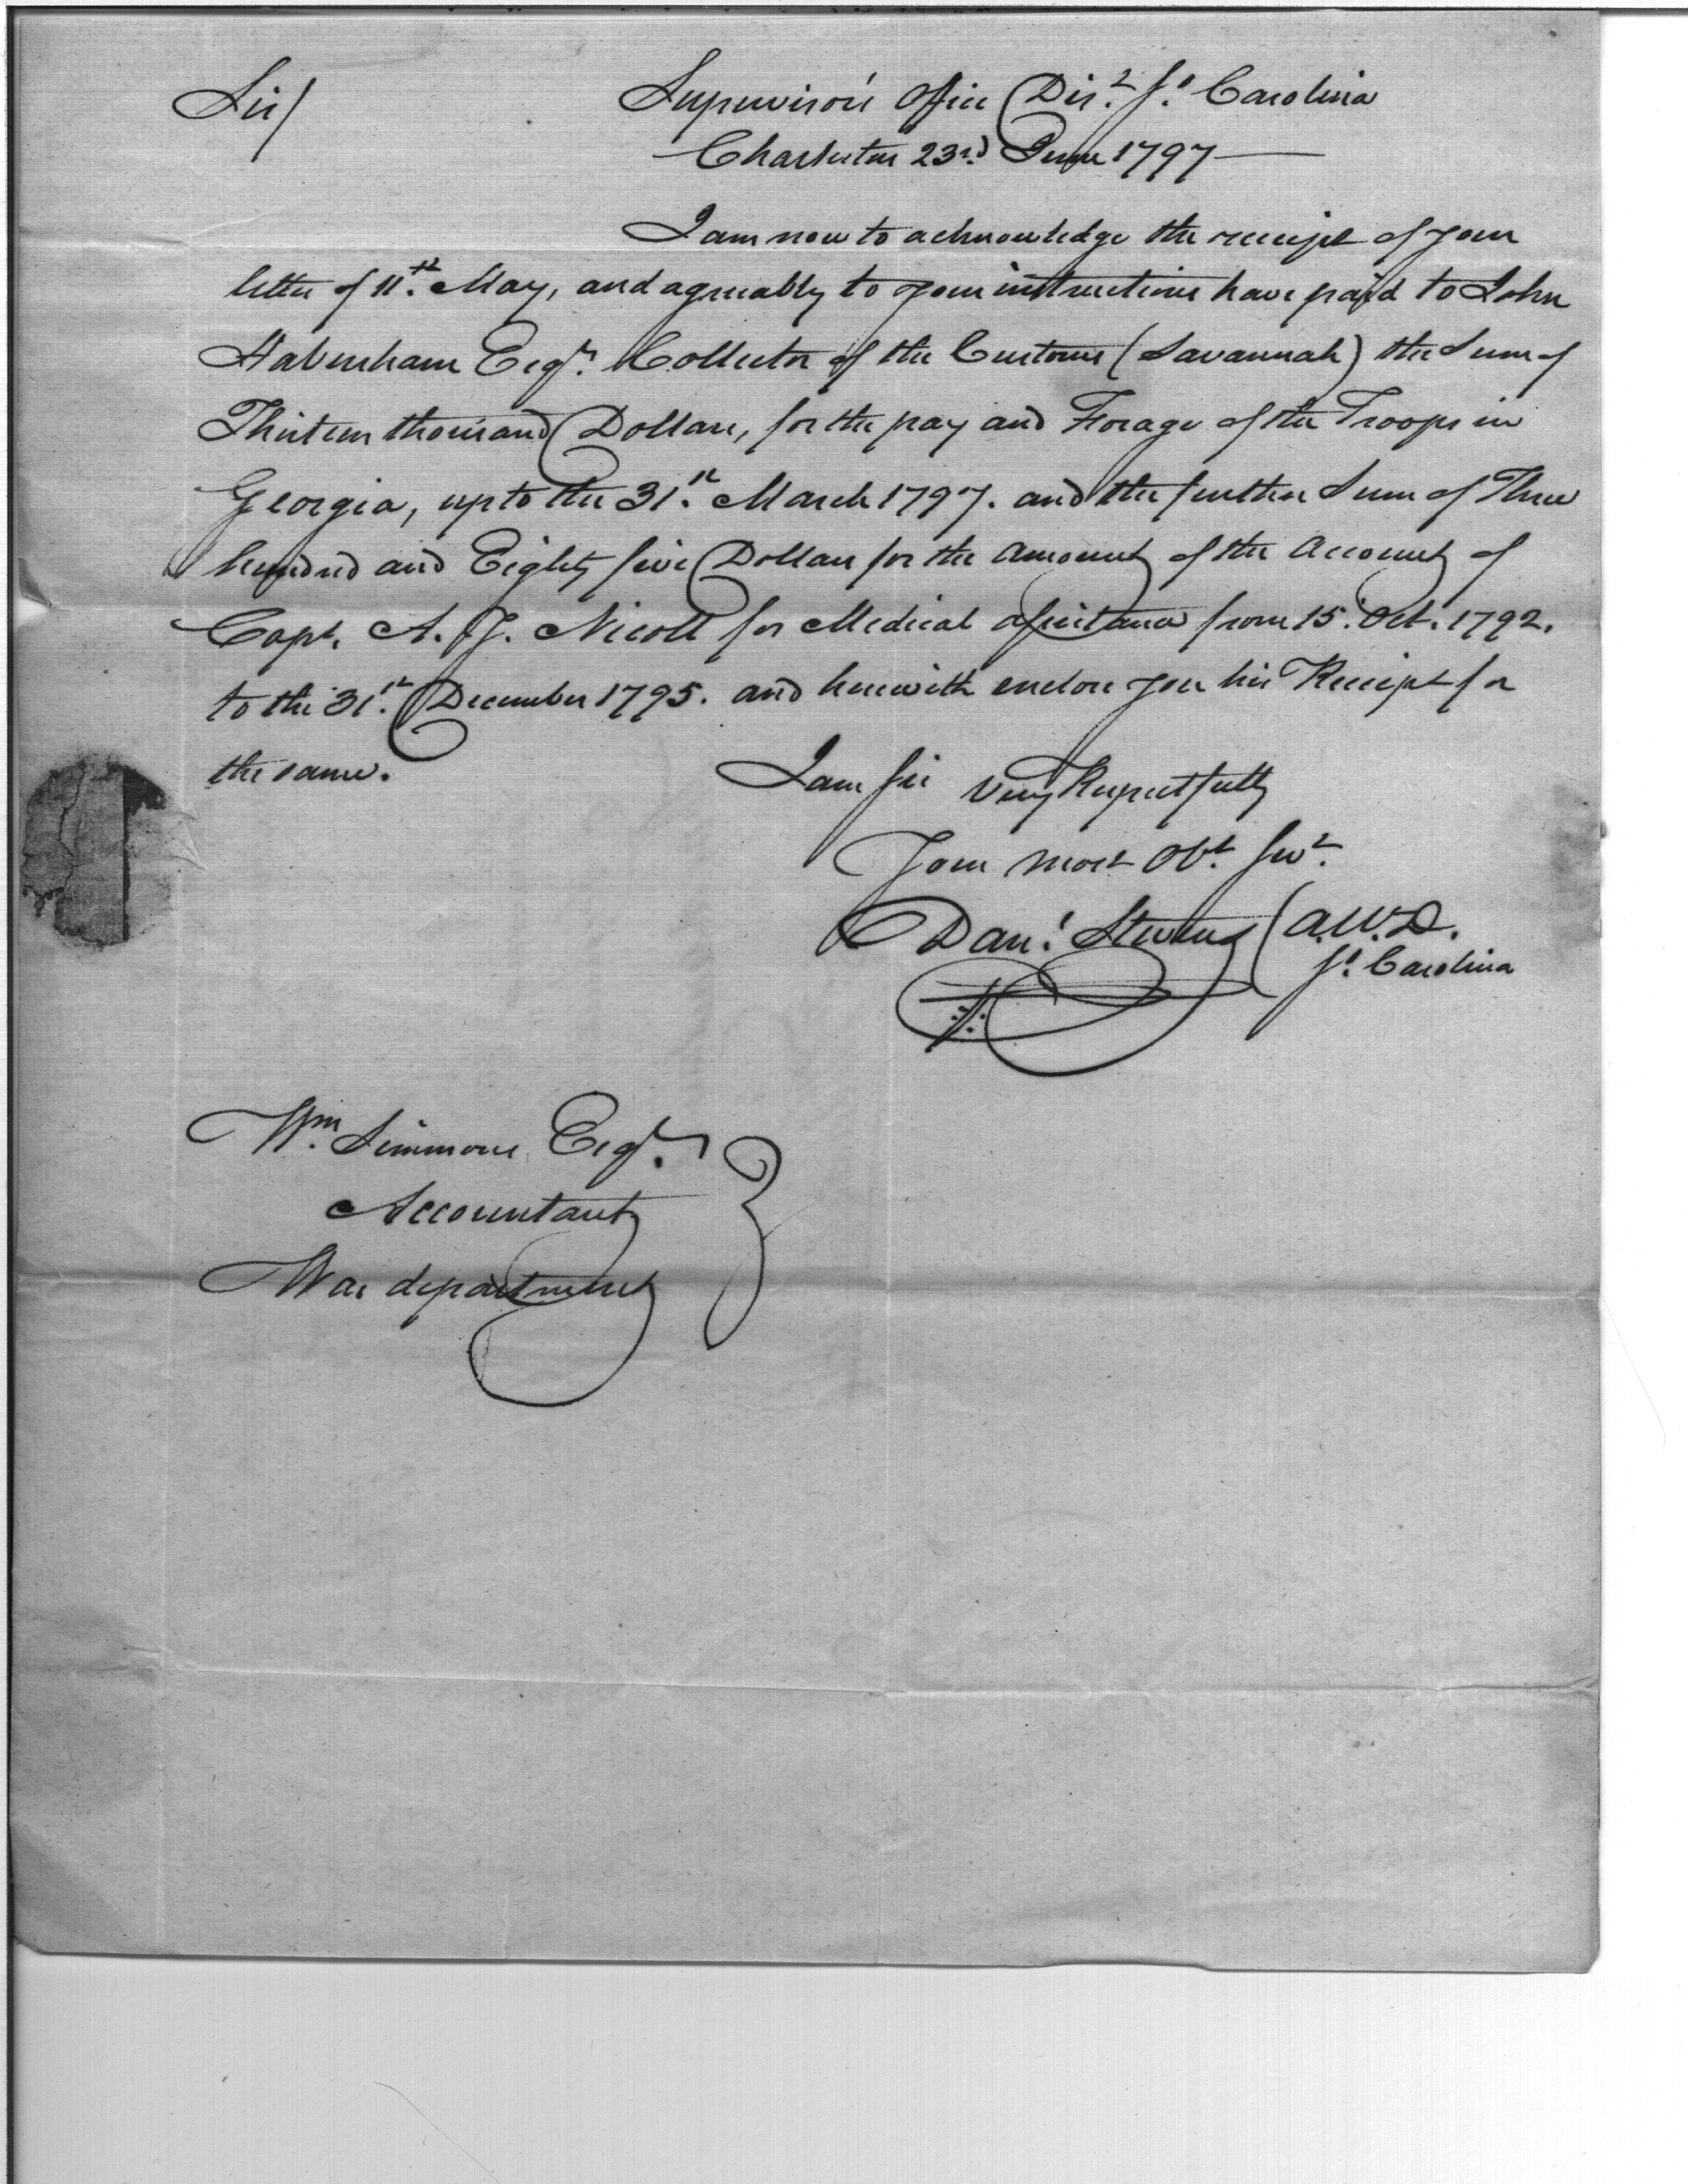 Sir/
Supervisors Office Dist. So. Carolina
Charleston 23rd. June 1797
I am now to acknowledge the receipt of your
letter of 11th. May, and agreeably to your instructions have paid to John
Habersham Esqr. Collector of the Customs (Savannah) the Sum of
Thirteen thousand Dollars, for the pay and Forage of the Troops in
Georgia, up to the 31st. March 1797. and the further Sum of Three
hundred and Eighty five Dollars for the Amount of the Account of
Capt. A. Y. Nicoll for Medical assistance from 15. Oct. 1792.
to the 31st. December 1795. and herewith enclose you his Receipt for
the same.
I am Sir Very Respectfully
Your most Obt. Servt.
Danl. Stevens
So. Carolina
Wm. Simmons Esqr.
Accountant
War department